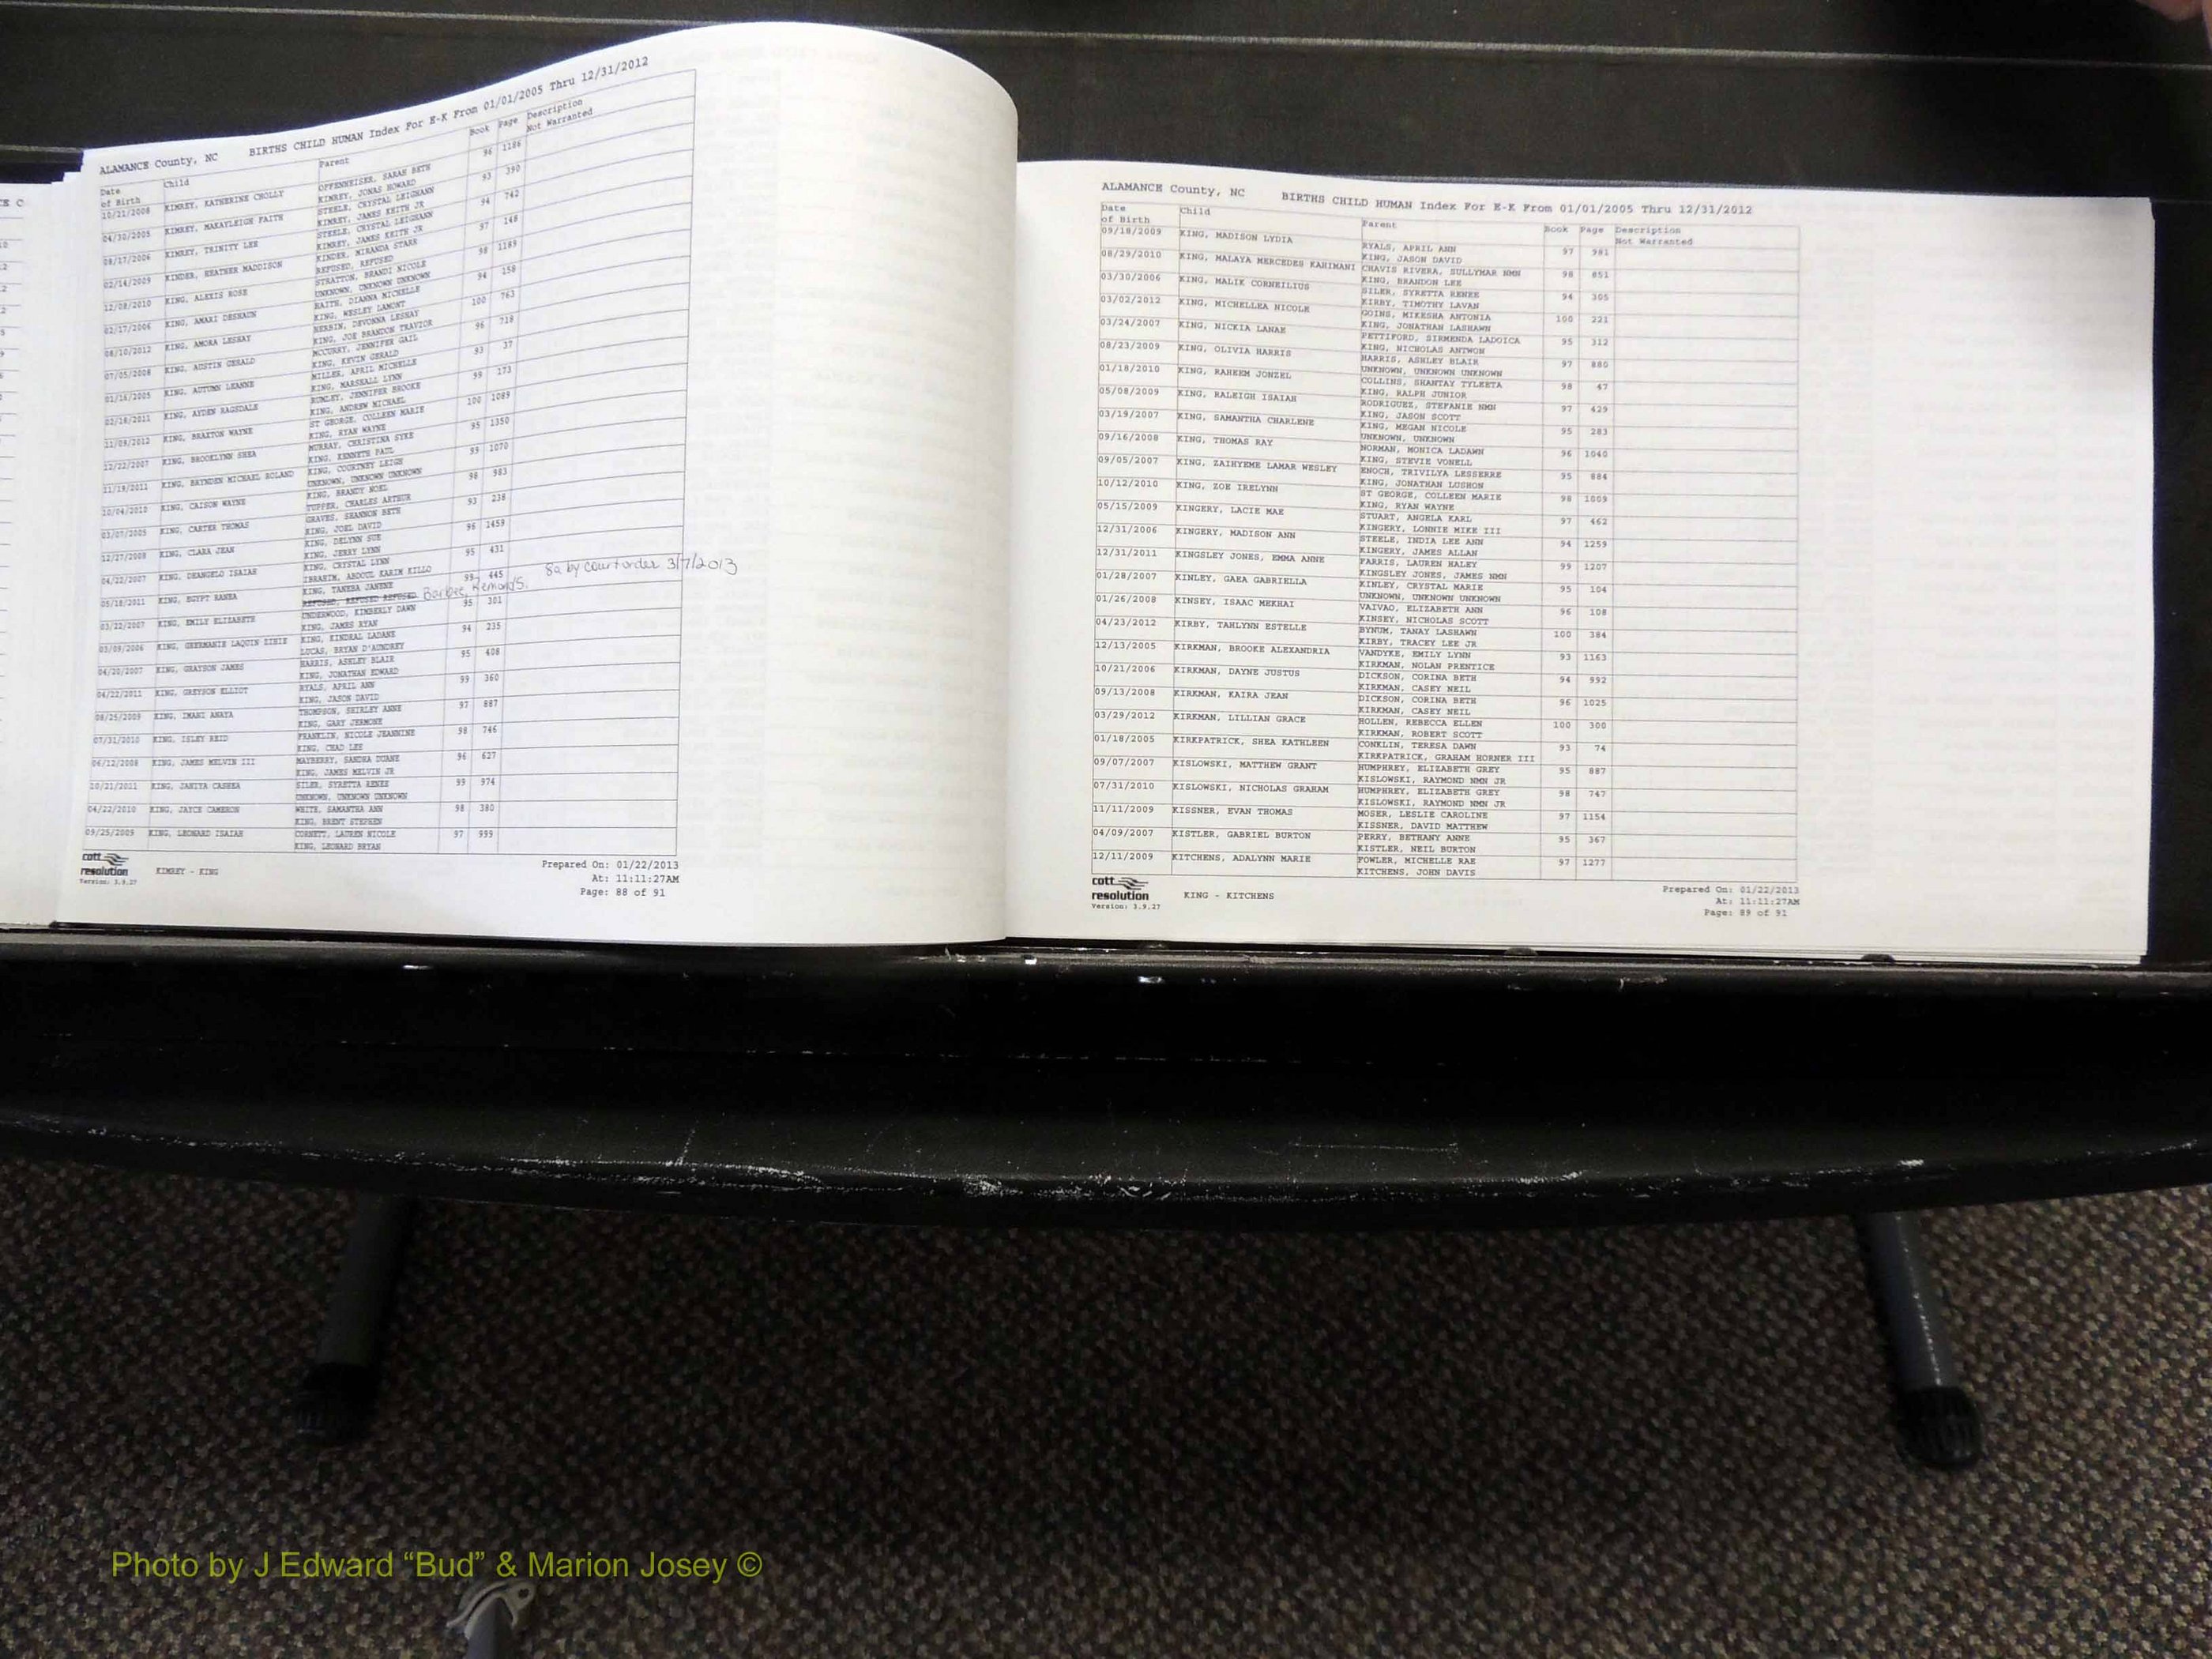 ALAMANCE County, NC BIRTHS CHILD HUMAN Index For E-K From 01/01/2005 Thru 12/31/2012
Date of Birth Child Parent Book Page Description Not Warranted
10/21/2008 KIMREY, KATHERINE CHOLLY OFFENNEISER, SARAH BETH 96 1186
KIMREY, JONAS HOWARD
04/30/2005 KIMREY, MAKAYLEIGH FAITH STEELE, CRYSTAL LEIGHANN 93 390
KIMREY, JAMES KEITH JR
09/17/2006 KIMREY, TRINITY LEE STEELE, CRYSTAL LEIGHANN 94 742
KIMREY, JAMES KEITH JR
02/14/2009 KINDER, HEATHER MADDISON KINDER, MIRANDA STARR 97 148
REFUSED, REFUSED
12/08/2010 KING, ALEXIS ROSE STRATTON, BRANDI NICOLE 98 1189
UNKNOWN, UNKNOWN UNKNOWN
02/17/2006 KING, AMARI DESHAUN RAITH, DIANNA MICHELLE 94 158
KING, WESLEY LAMONT
08/10/2012 KING, AMORA LESHAY HERBIN, DEVONNA LESHAY 100 763
KING, JOE BRANDON TRAVIOR
07/05/2008 KING, AUSTIN GERALD MCCURRY, JENNIFER GAIL 96 718
KING, KEVIN GERALD
01/16/2005 KING, AUTUMN LEANNE MILLER, APRIL MICHELLE 93 37
KING, MARSHALL LYNN
02/16/2011 KING, AYDEN RAGSDALE RUMLEY, JENNIFER BROOKE 99 173
KING, ANDREW MICHAEL
11/09/2012 KING, BRAXTON WAYNE ST GEORGE, COLLEEN MARIE 100 1089
KING, RYAN WAYNE
12/22/2007 KING, BROOKLYNN SHEA MURRAY, CHRISTINA SYKE 95 1350
KING, KENNETH PAUL
11/19/2011 KING, BRYNDEN MICHAEL ROLAND KING, COURTNEY LEIGH 99 1070
UNKNOWN, UNKNOWN UNKNOWN
10/04/2010 KING, CAISON WAYNE KING, BRANDY NOEL 98 983
TUPPER, CHARLES ARTHUR
03/07/2005 KING, CARTER THOMAS GRAVES, SHANNON BETH 93 238
KING, JOEL DAVID
12/27/2008 KING, CLARA JEAN KING, DELYNN SUE 96 1459
KING, JERRY LYNN
04/22/2007 KING, DEANGELO ISAIAH KING, CRYSTAL LYNN 95 431
IBRAHIM, ABDOUL KARIM KILLO
05/18/2011 KING, EGYPT RANEA KING, TANEBA JANENE 99 445 8a by court order 3/7/2013
REFUSED, REFUSED REFUSED Barbee, Remond S.
03/22/2007 KING, EMILY ELIZABETH UNDERWOOD, KIMBERLY DAWN 95 301
KING, JAMES RYAN
03/09/2006 KING, GHERMANIE LAQUIN ZIRIE KING, KINDRAL LADANE 94 235
LUCAS, BRYAN D'AUNDREY
04/20/2007 KING, GRAYSON JAMES HARRIS, ASHLEY BLAIR 95 408
KING, JONATHAN EDWARD
04/22/2011 KING, GREYSON ELLIOT RYALS, APRIL ANN 99 360
KING, JASON DAVID
08/25/2009 KING, IMANI ANAYA THOMPSON, SHIRLEY ANNE 97 887
KING, GARY JERMONE
07/31/2010 KING, ISLEY REID FRANKLIN, NICOLE JEANNINE 98 746
KING, CHAD LEE
06/12/2008 KING, JAMES MELVIN III MAYBERRY, SANDRA DUANE 96 627
KING, JAMES MELVIN JR
10/21/2011 KING, JANIYA CASHEA SILER, SYRETTA RENEE 99 974
UNKNOWN, UNKNOWN UNKNOWN
04/22/2010 KING, JAYCE CAMERON WHITE, SAMANTHA ANN 98 380
KING, BRENT STEPHEN
09/25/2009 KING, LEONARD ISAIAH CORNETT, LAUREN NICOLE 97 999
KING, LEONARD BRYAN
cott resolution
Version: 3.9.27
KIMREY - KING
Prepared On: 01/22/2013
At: 11:11:27AM
Page: 88 of 91
ALAMANCE County, NC BIRTHS CHILD HUMAN Index For E-K From 01/01/2005 Thru 12/31/2012
Date of Birth Child Parent Book Page Description Not Warranted
09/18/2009 KING, MADISON LYDIA RYALS, APRIL ANN 97 981
KING, JASON DAVID
08/29/2010 KING, MALAYA MERCEDES KAHIMANI CHAVIS RIVERA, SULLYMAR NMN 98 851
KING, BRANDON LEE
03/30/2006 KING, MALIK CORNEILIUS SILER, SYRETTA RENEE 94 305
KIRBY, TIMOTHY LAVAN
03/02/2012 KING, MICHELLEA NICOLE GOINS, MIKESHA ANTONIA 100 221
KING, JONATHAN LASHAWN
03/24/2007 KING, NICKIA LANAE PETTIFORD, SIRMENDA LADOICA 95 312
KING, NICHOLAS ANTWON
08/23/2009 KING, OLIVIA HARRIS HARRIS, ASHLEY BLAIR 97 880
UNKNOWN, UNKNOWN UNKNOWN
01/18/2010 KING, RAHEEM JONZEL COLLINS, SHANTAY TYLEETA 98 47
KING, RALPH JUNIOR
05/08/2009 KING, RALEIGH ISAIAH RODRIGUEZ, STEFANIE NMN 97 429
KING, JASON SCOTT
03/19/2007 KING, SAMANTHA CHARLENE KING, MEGAN NICOLE 95 283
UNKNOWN, UNKNOWN
09/16/2008 KING, THOMAS RAY NORMAN, MONICA LADAWN 96 1040
KING, STEVIE VONELL
09/05/2007 KING, ZAIHYEME LAMAR WESLEY ENOCH, TRIVILYA LESSERRE 95 884
KING, JONATHAN LUSHON
10/12/2010 KING, ZOE IRELYNN ST GEORGE, COLLEEN MARIE 98 1009
KING, RYAN WAYNE
05/15/2009 KINGERY, LACIE MAE STUART, ANGELA KARL 97 462
KINGERY, LONNIE MIKE III
12/31/2006 KINGERY, MADISON ANN STEELE, INDIA LEE ANN 94 1259
KINGERY, JAMES ALLAN
12/31/2011 KINGSLEY JONES, EMMA ANNE FARRIS, LAUREN HALEY 99 1207
KINGSLEY JONES, JAMES NMN
01/28/2007 KINLEY, GAEA GABRIELLA KINLEY, CRYSTAL MARIE 95 104
UNKNOWN, UNKNOWN UNKNOWN
01/26/2008 KINSEY, ISAAC MEKHAI VAIVAO, ELIZABETH ANN 96 108
KINSEY, NICHOLAS SCOTT
04/23/2012 KIRBY, TAHLYNN ESTELLE BYNUM, TANAY LASHAWN 100 384
KIRBY, TRACEY LEE JR
12/13/2005 KIRKMAN, BROOKE ALEXANDRIA VANDYKE, EMILY LYNN 93 1163
KIRKMAN, NOLAN PRENTICE
10/21/2006 KIRKMAN, DAYNE JUSTUS DICKSON, CORINA BETH 94 992
KIRKMAN, CASEY NEIL
09/13/2008 KIRKMAN, KAIRA JEAN DICKSON, CORINA BETH 96 1025
KIRKMAN, CASEY NEIL
03/29/2012 KIRKMAN, LILLIAN GRACE HOLLEN, REBECCA ELLEN 100 300
KIRKMAN, ROBERT SCOTT
01/18/2005 KIRKPATRICK, SHEA KATHLEEN CONKLIN, TERESA DAWN 93 74
KIRKPATRICK, GRAHAM HORNER III
09/07/2007 KISLOWSKI, MATTHEW GRANT HUMPHREY, ELIZABETH GREY 95 887
KISLOWSKI, RAYMOND NMN JR
07/31/2010 KISLOWSKI, NICHOLAS GRAHAM HUMPHREY, ELIZABETH GREY 98 747
KISLOWSKI, RAYMOND NMN JR
11/11/2009 KISSNER, EVAN THOMAS MOSER, LESLIE CAROLINE 97 1154
KISSNER, DAVID MATTHEW
04/09/2007 KISTLER, GABRIEL BURTON PERRY, BETHANY ANNE 95 367
KISTLER, NEIL BURTON
12/11/2009 KITCHENS, ADALYNN MARIE FOWLER, MICHELLE RAE 97 1277
KITCHENS, JOHN DAVIS
cott resolution
Version: 3.9.27
KING - KITCHENS
Prepared On: 01/22/2013
At: 11:11:27AM
Page: 89 of 91
Photo by J Edward “Bud” & Marion Josey ©